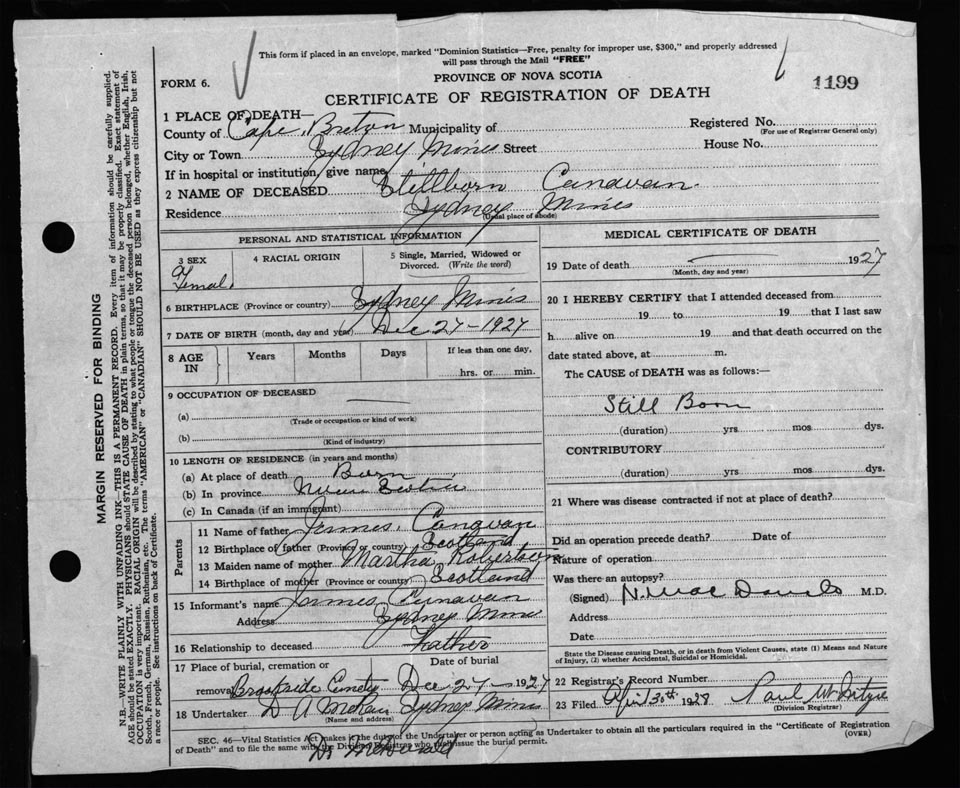 This form if placed in an envelope, marked "Dominion Statistics—Free, penalty for improper use, $300," and properly addressed
will pass through the Mail "FREE"
FORM 6.
PROVINCE OF NOVA SCOTIA
1199
CERTIFICATE OF REGISTRATION OF DEATH
1 PLACE OF DEATH—
County of Cape Breton Municipality of Registered No.
(For use of Registrar General only)
City or Town Sydney Mines Street House No.
If in hospital or institution, give name
2 NAME OF DECEASED Stillborn Canavan.
Residence Sydney Mines
(Usual place of abode)
PERSONAL AND STATISTICAL INFORMATION
3 SEX 4 RACIAL ORIGIN 5 Single, Married, Widowed or
Divorced. (Write the word)
Female
6 BIRTHPLACE (Province or country) Sydney Mines
7 DATE OF BIRTH (month, day and year) Dec 27-1927
8 AGE IN Years Months Days If less than one day.
hrs. or min.
9 OCCUPATION OF DECEASED
(a)
(Trade or occupation or kind of work)
(b)
(Kind of industry)
10 LENGTH OF RESIDENCE (in years and months)
(a) At place of death Born
(b) In province Nova Scotia
(c) In Canada (if an immigrant)
Parents
11 Name of father James Canavan
12 Birthplace of father (Province or country) Scotland
13 Maiden name of mother Martha Robertson
14 Birthplace of mother (Province or country) Scotland
15 Informant's name James Canavan
Address Sydney Mines
16 Relationship to deceased Father
17 Place of burial, cremation or Date of burial
removal Brookside Cemetry Dec 27-1927
18 Undertaker D A Sydney Mines
(Name and address)
MEDICAL CERTIFICATE OF DEATH
19 Date of death 1927
(Month, day and year)
20 I HEREBY CERTIFY that I attended deceased from
19 to 19 that I last saw
h alive on 19 and that death occurred on the
date stated above, at m.
The CAUSE of DEATH was as follows:—
Still Born
(duration) yrs mos dys.
CONTRIBUTORY
(duration) yrs. mos. dys.
21 Where was disease contracted if not at place of death?
Did an operation precede death? Date of
Nature of operation
Was there an autopsy?
(Signed) M.D.
Address
Date
State the Disease causing Death, or in death from Violent Causes, state (1) Means and Nature
of Injury, (2) whether Accidental, Suicidal or Homicidal.
22 Registrar's Record Number
23 Filed April 30th 1928 Paul
(Division Registrar)
SEC. 46—Vital Statistics Act makes it the duty of the Undertaker or person acting as Undertaker to obtain all the particulars required in the "Certificate of Registration
of Death" and to file the same with the Division Registrar who shall issue the burial permit.
(OVER)
Dr McDonald
MARGIN RESERVED FOR BINDING
N.B.—WRITE PLAINLY WITH UNFADING INK—THIS IS A PERMANENT RECORD. Every item of information should be carefully supplied.
AGE should be stated EXACTLY. PHYSICIANS should STATE CAUSE OF DEATH in plain terms, so that it may be properly classified. Exact statement of
OCCUPATION is very important. RACIAL ORIGIN will be described by stating to what people or tongue the deceased person belonged, whether English, Irish,
Scotch, French, German, Russian, Ruthenian, etc. The terms "AMERICAN" or "CANADIAN" SHOULD NOT BE USED as they express citizenship but not
a race or people. See instructions on back of Certificate.